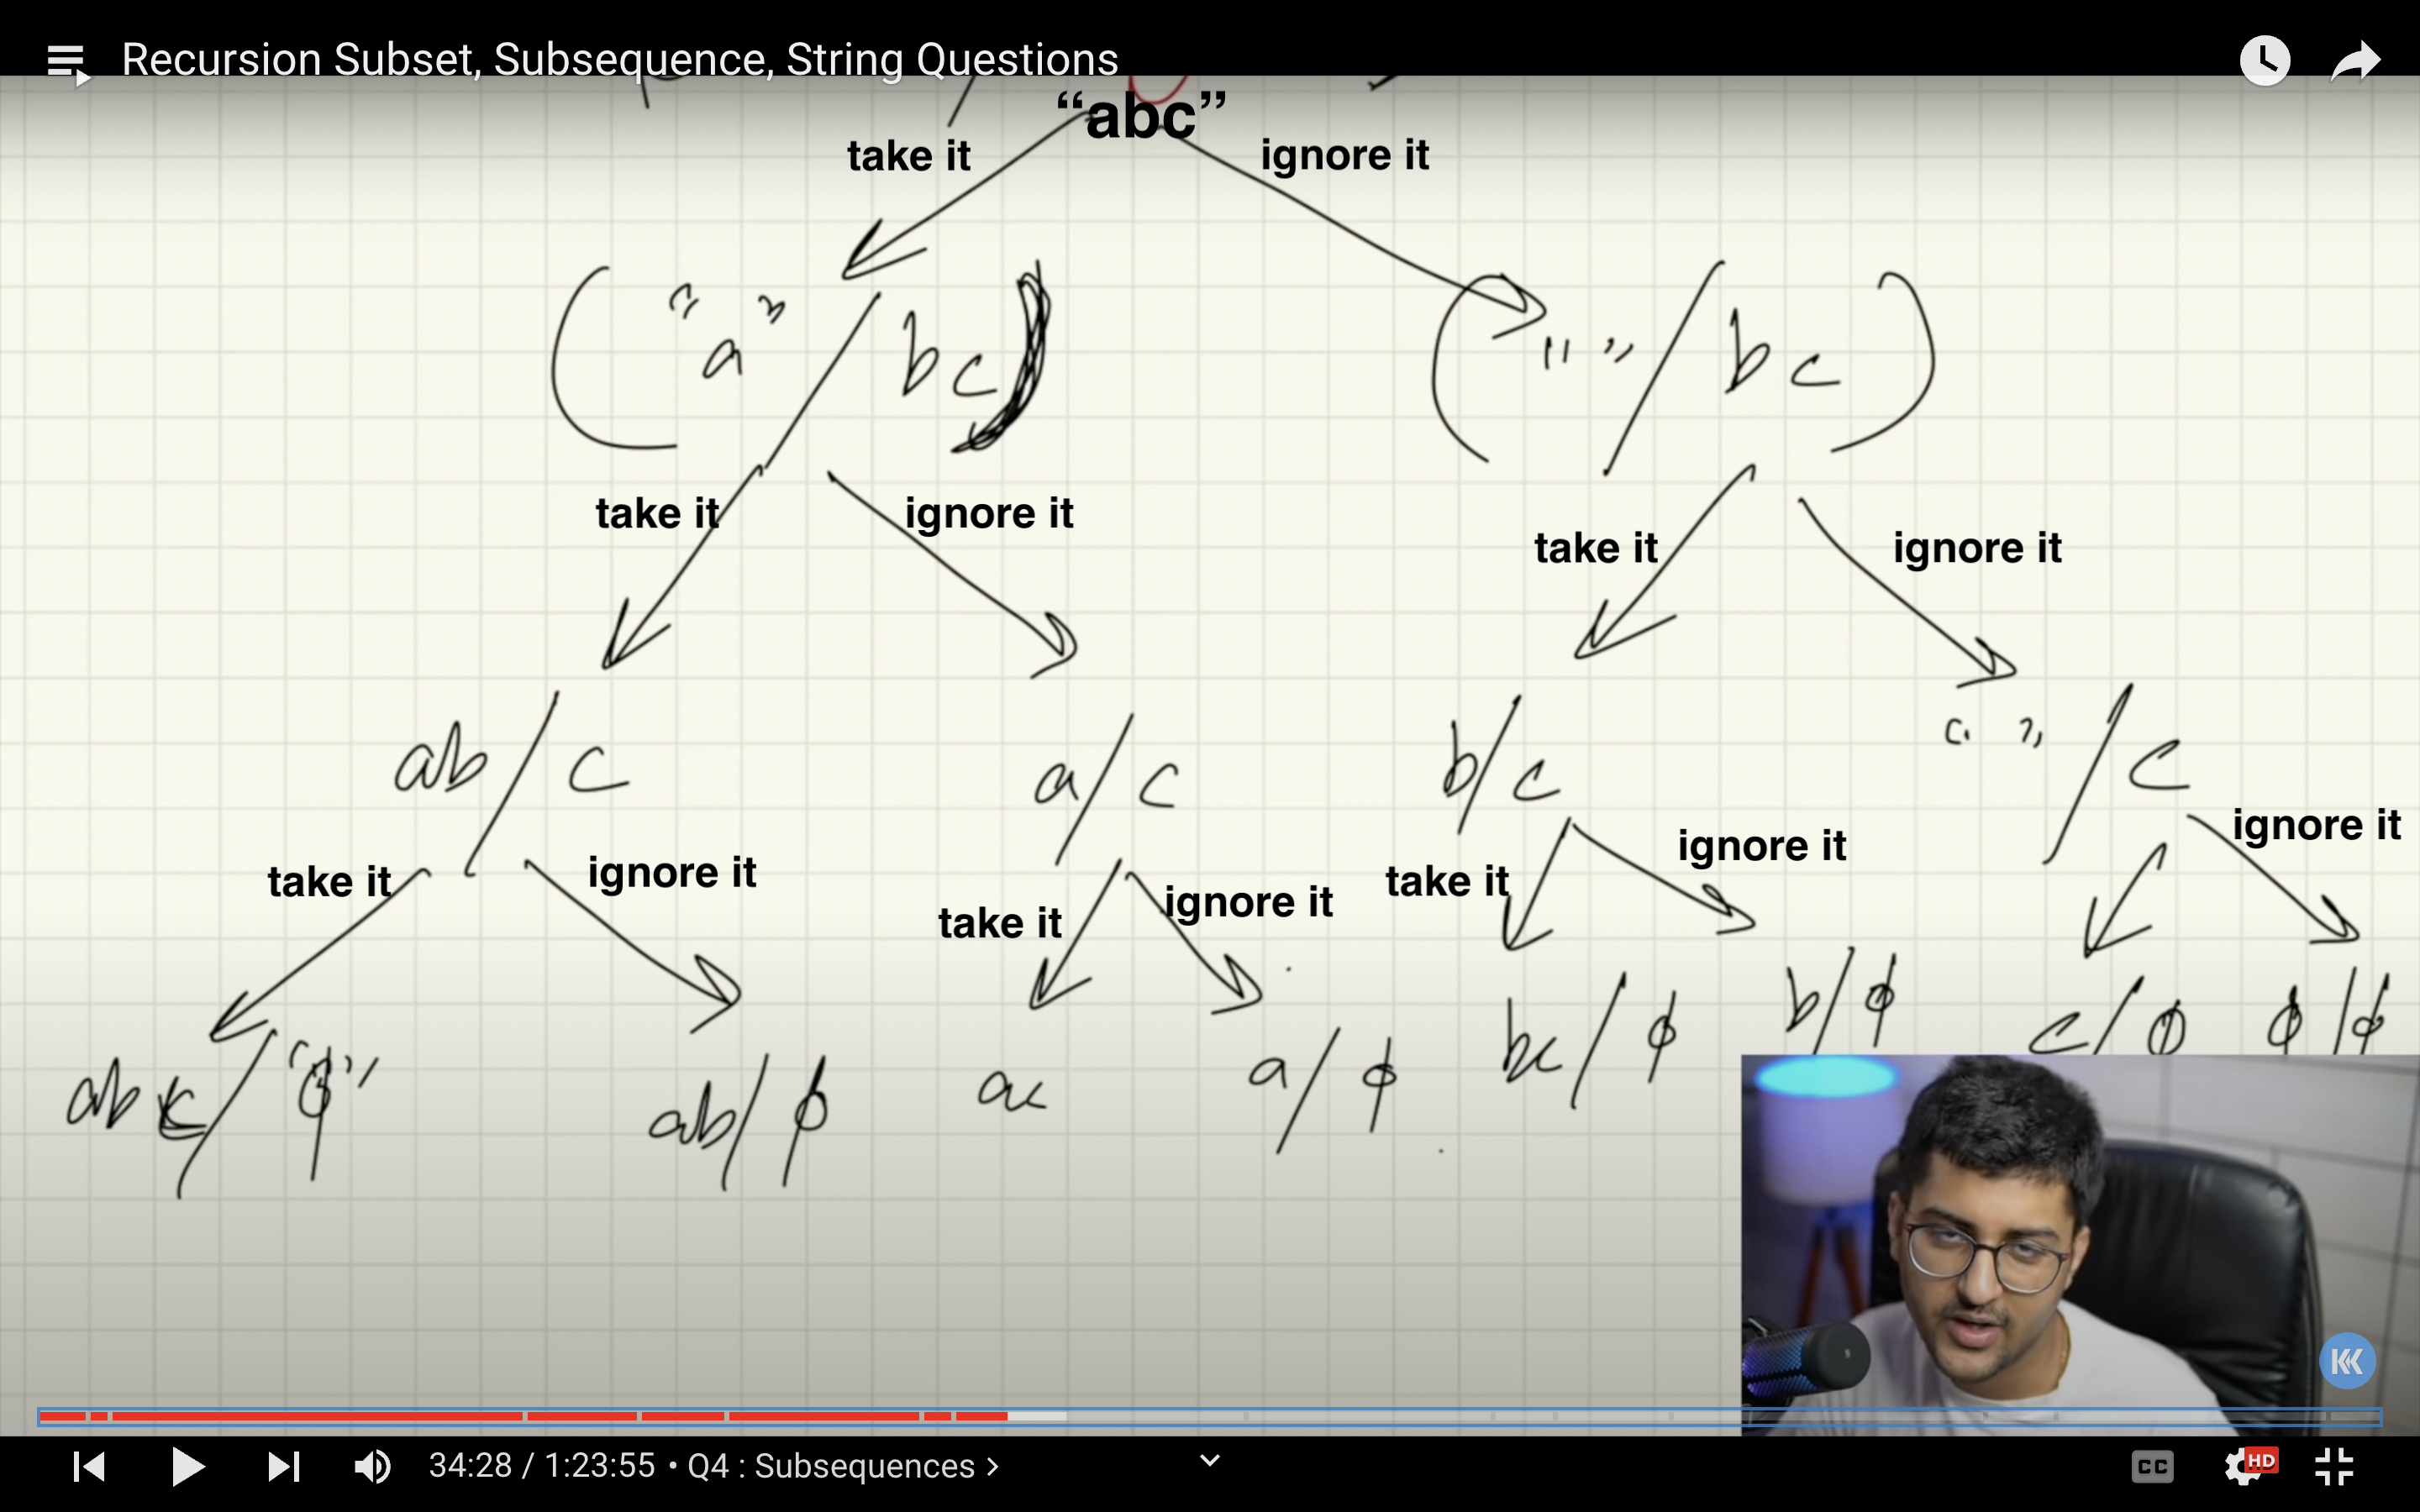 Recursion Subset, Subsequence, String Questions
“abc”
take it ignore it
“a” / bc
“ ” / bc
take it ignore it take it ignore it
ab / c a / c b / c “ ” / c
take it ignore it take it ignore it take it ignore it ignore it
abc / “ϕ” ab / ϕ ac a / ϕ bc / ϕ b / ϕ c / ϕ ϕ / ϕ
34:28 / 1:23:55 • Q4 : Subsequences >
CC HD